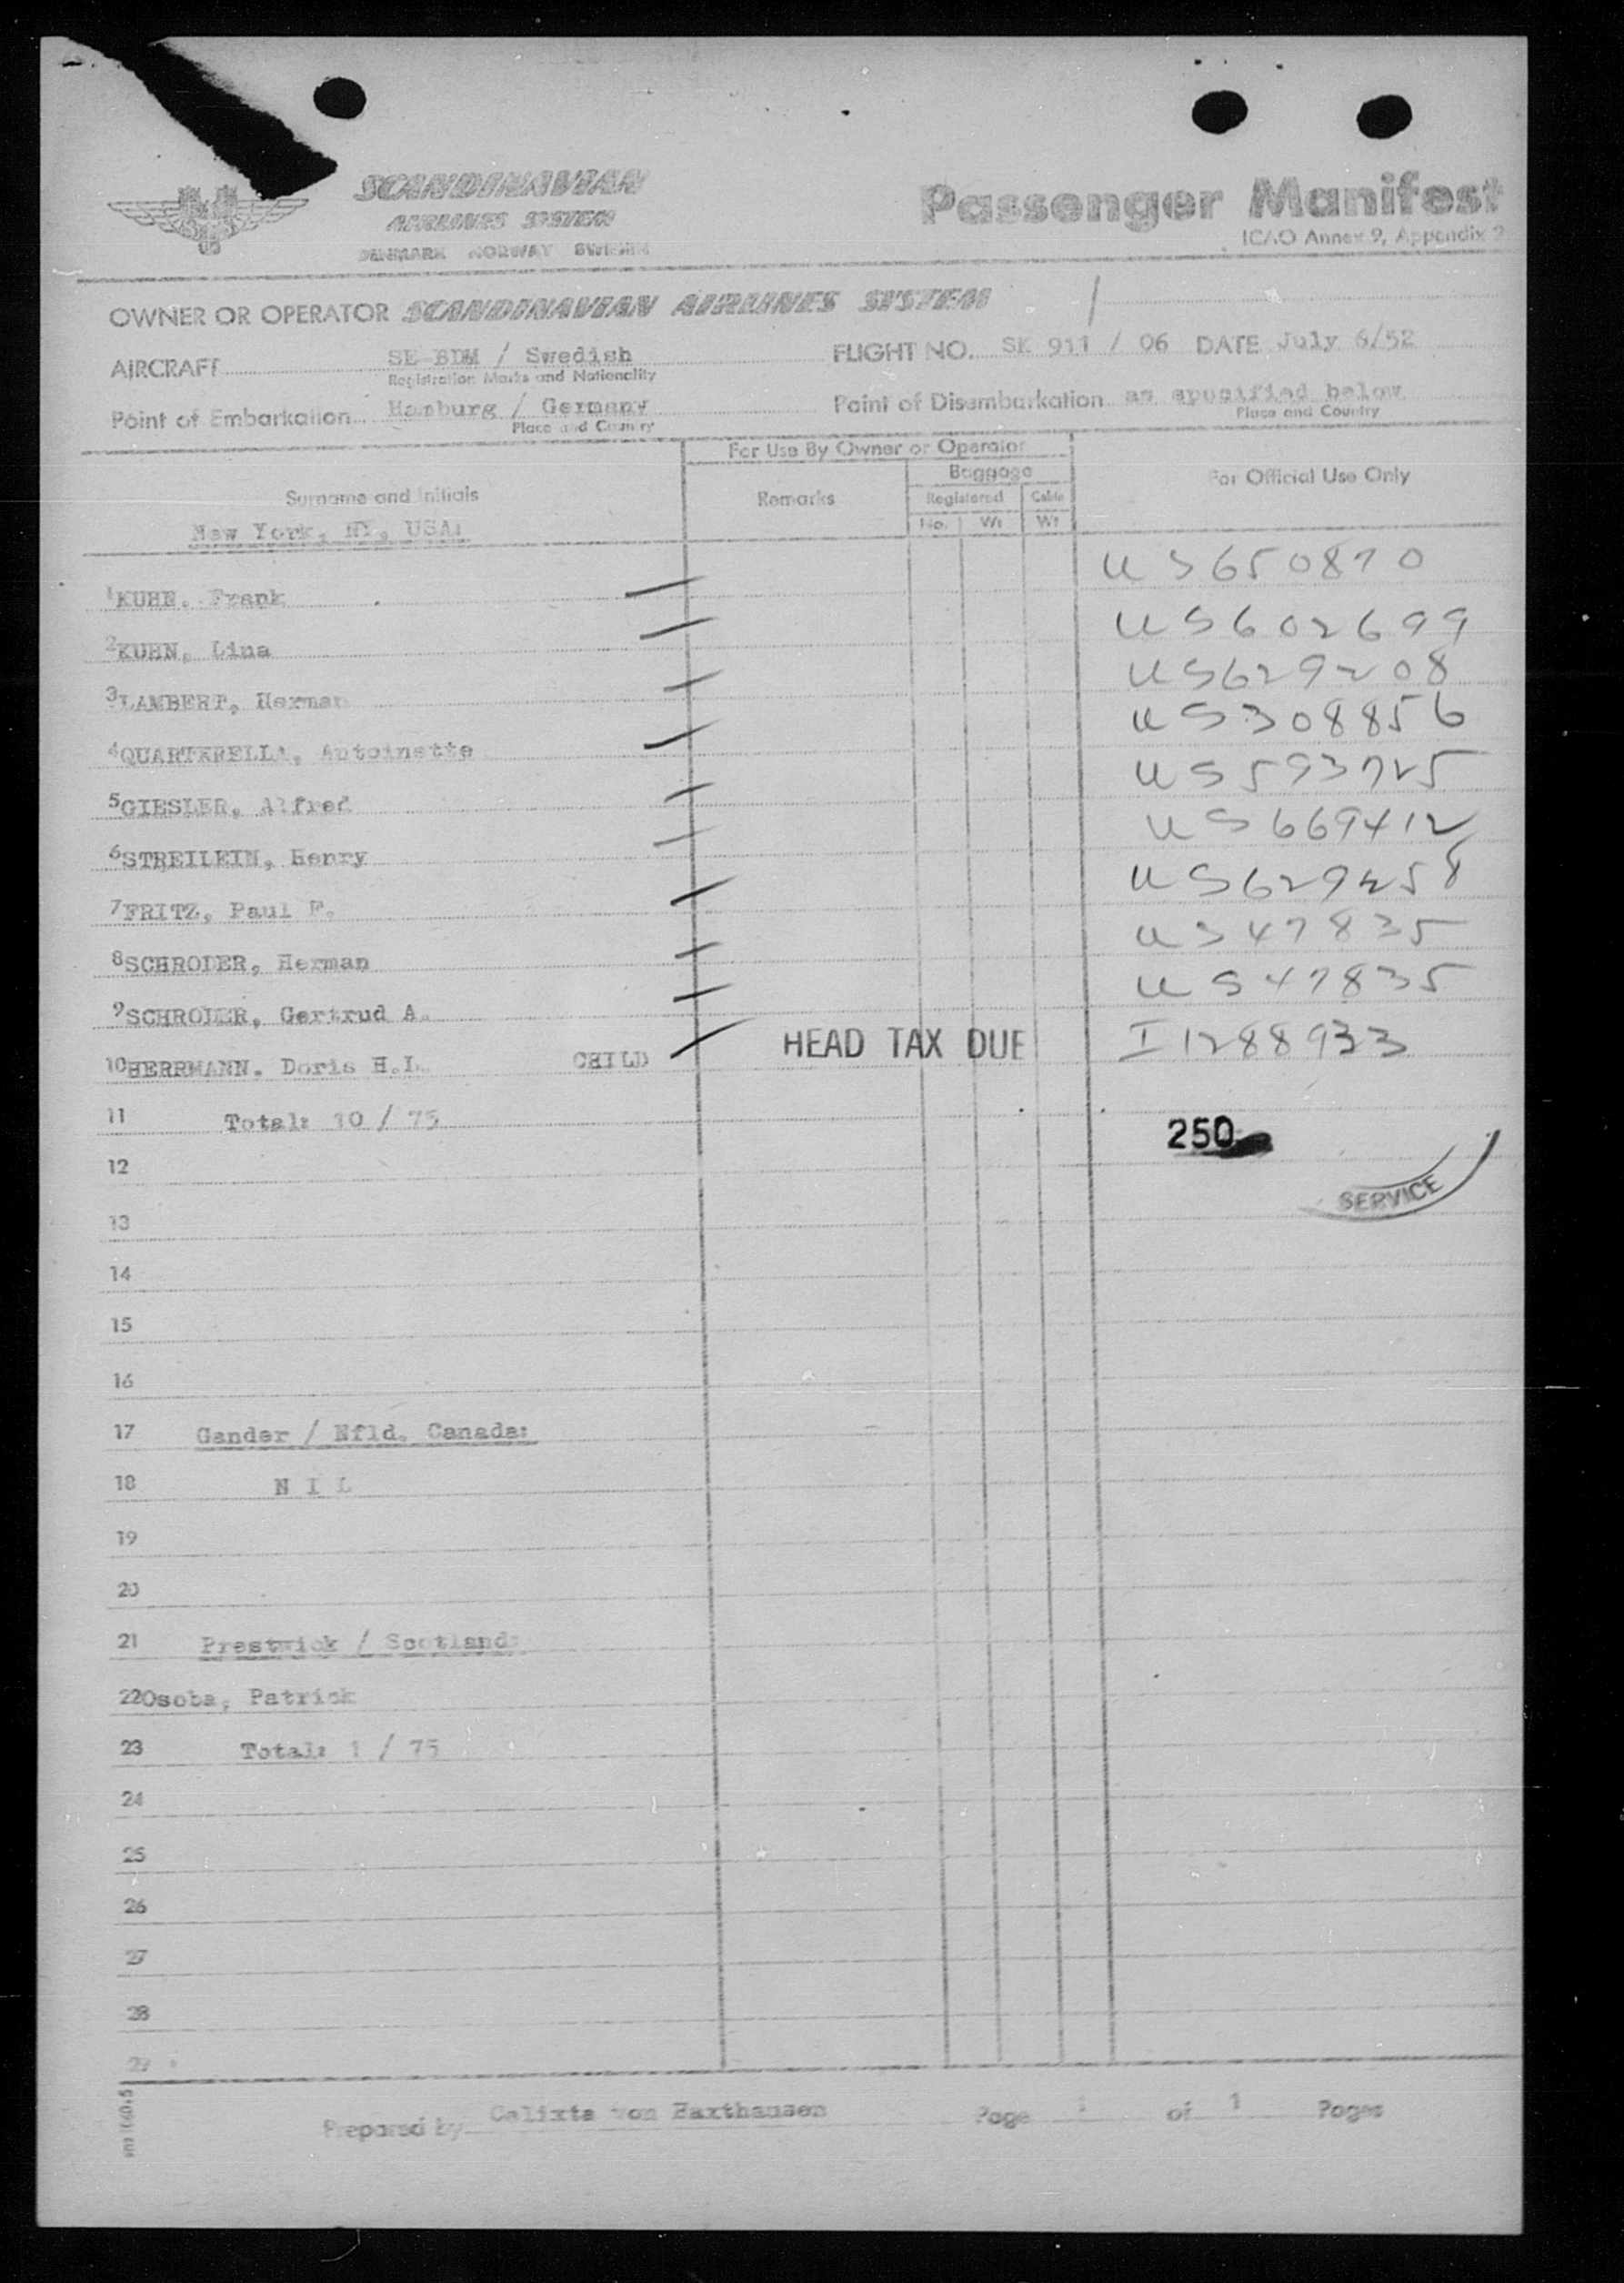 SCANDINAVIAN
AIRLINES SYSTEM
DENMARK NORWAY SWEDEN
Passenger Manifest
ICAO Annex 9, Appendix 2
OWNER OR OPERATOR SCANDINAVIAN AIRLINES SYSTEM
AIRCRAFT SE-BDM / Swedish
Registration Marks and Nationality
FLIGHT NO. SK 911 / 06 DATE July 6/52
Point of Embarkation Hamburg / Germany
Place and Country
Point of Disembarkation as specified below
Place and Country
Surname and Initials
For Use By Owner or Operator
Remarks
Baggage
Registered
Cabin
No. Wt Wt
For Official Use Only
New York, NY, USA:
1 KUHN, Frank US650870
2 KUHN, Lina US602699
3 LAMBERT, Herman US629208
4 QUARTARELLA, Antoinette US308856
5 GIESLER, Alfred US593725
6 STREILEIN, Henry US669412
7 FRITZ, Paul F. US629258
8 SCHRODER, Herman US47835
9 SCHRODER, Gertrud A. US47835
10 HERRMANN, Doris H.I. CHILD HEAD TAX DUE I1288933
11 Total: 10 / 75
250
12
SERVICE
13
14
15
16
17 Gander / Nfld. Canada:
18 N I L
19
20
21 Prestwick / Scotland:
22 Osoba, Patrick
23 Total: 1 / 75
24
25
26
27
28
29
Prepared by Calixta von Haxthausen Page 1 of 1 Pages